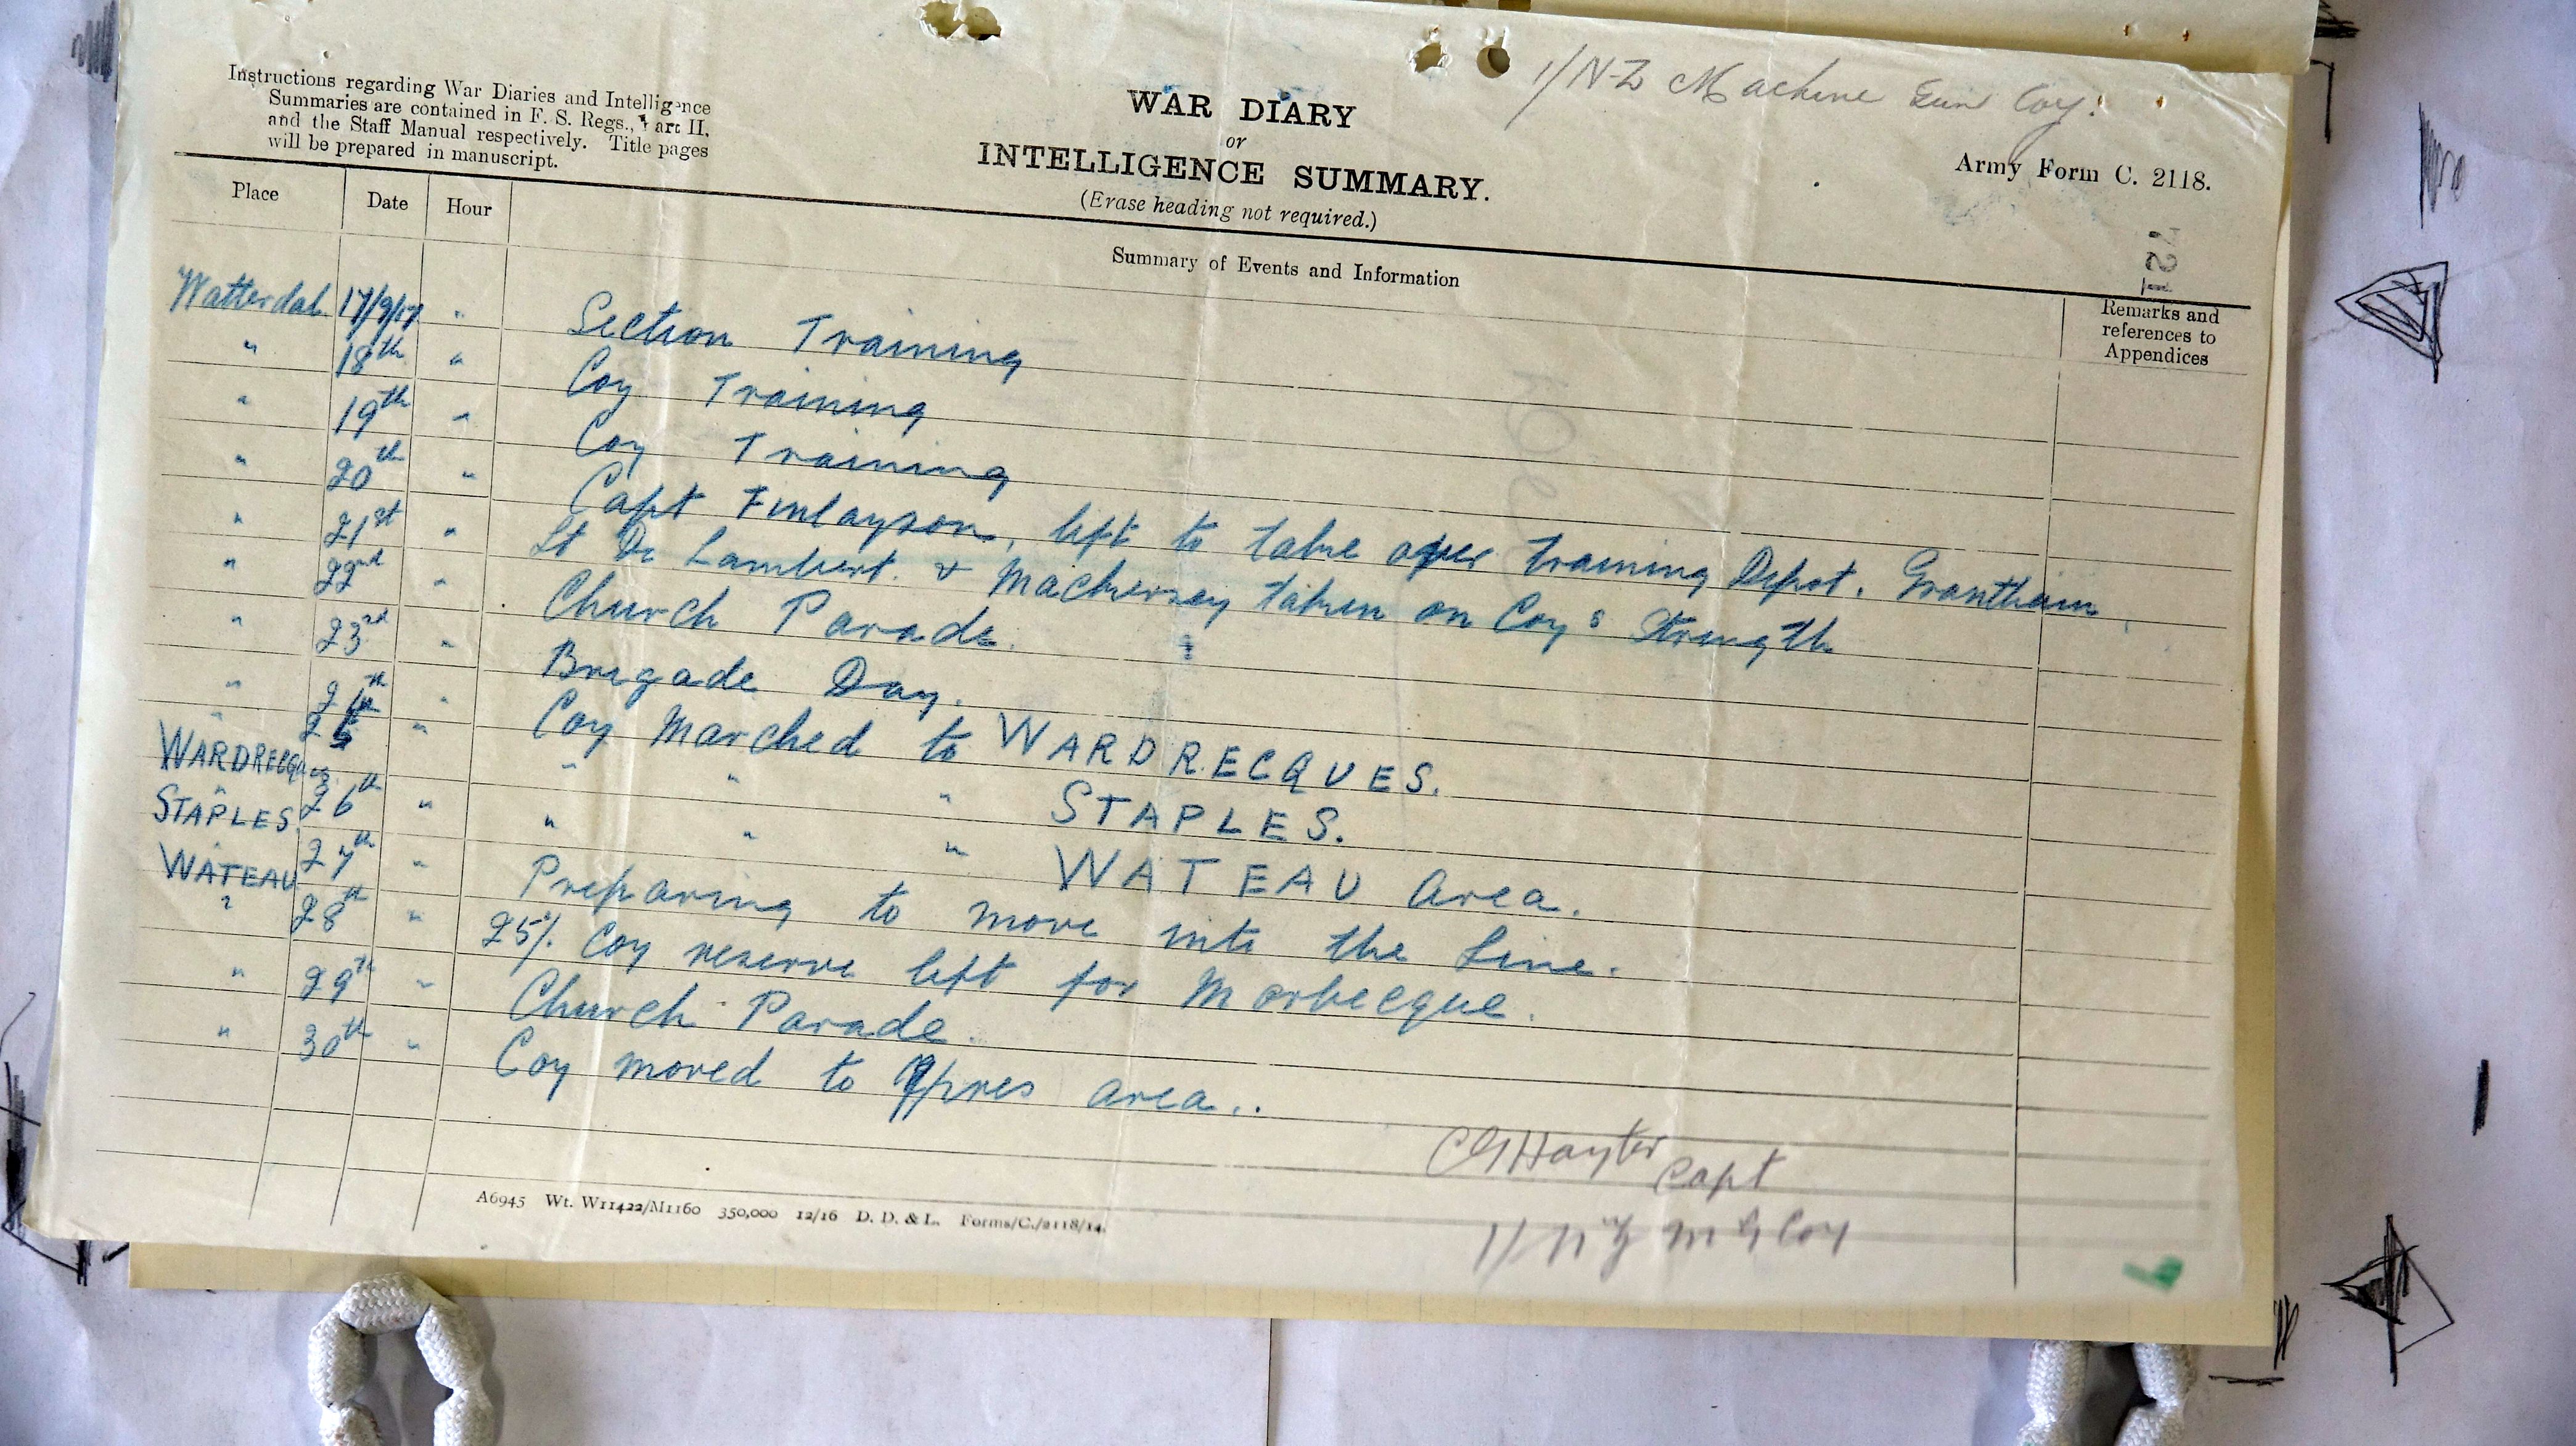 1/N-Z Machine Gun Coy.
Instructions regarding War Diaries and Intelligence
Summaries are contained in F. S. Regs., Part II,
and the Staff Manual respectively. Title pages
will be prepared in manuscript.
WAR DIARY
or
INTELLIGENCE SUMMARY.
(Erase heading not required.)
Army Form C. 2118.
Place Date Hour Summary of Events and Information Remarks and
references to
Appendices
Watterdal 17/9/17 " Section Training
" 18th " Coy Training
" 19th " Coy Training
" 20th " Capt Finlayson, left to take over training Depot. Grantham,
" 21st " Lt De Lambert. & Mackersey taken on Coy's Strength
" 22nd " Church Parade.
" 23rd " Brigade Day.
" 24th " Coy Marched to WARDRECQUES.
WARDRECQUES 25 " " " " STAPLES.
STAPLES. 26th " " " " WATEAU Area.
WATEAU 27th " Preparing to move into the Line.
" 28th " 25% Coy reserve left for Morbecque.
" 29th " Church Parade.
" 30th " Coy moved to Ypres area..
CGHayter Capt
1/NZ M G Coy
A6945 Wt. W11422/M1160 350,000 12/16 D. D. & L. Forms/C./2118/14.